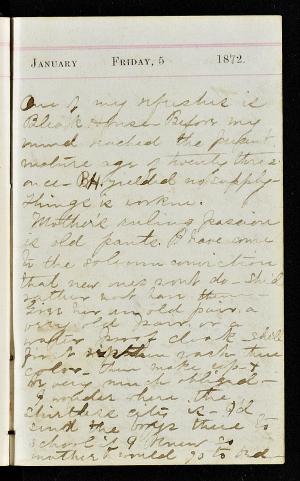 JANUARY FRIDAY, 5 1872.
One of my refushes is
Bleak House - Before my
mind reached the present
mature age of twenty three
once - B.H. yielded no supply -
Things is workin.
Mother's ruling passion
is old pants. I have come
to the solemn conviction
that new ones wont do - she'd
rather not have them -
Give her an old pair, a
very old pair or a
water proof cloak - she'll
just wash
color - then make up - &
be very much obliged -
I wonder where the
shirtless city is - I'd
send the boys there to
school if I knew so
mother would go to bed -